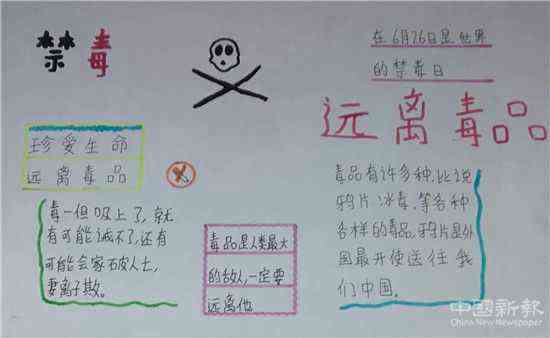 禁毒
在6月26日是世界
的禁毒日
远离毒品
珍爱生命
远离毒品
毒一但吸上了,就
有可能诫不了,还有
可能会家破人亡,
妻离子散。
毒品是人类最大
的敌人,一定要
远离他
毒品有许多种.比说
鸦片.冰毒.等各种
各样的毒品.鸦片是外
国最开使送往我
们中国。
中國新報
China New Newspaper